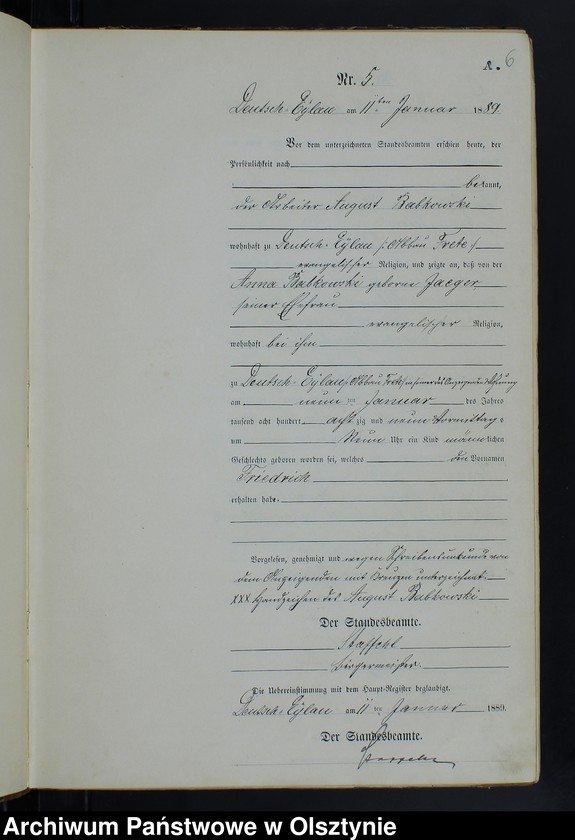 A. 6
Nr. 5.
Deutsch-Eylau am 11ten Januar 1889
Vor dem unterzeichneten Standesbeamten erschien heute, der
Persönlichkeit nach
bekannt,
der Arbeiter August Babkowski
wohnhaft zu Deutsch-Eylau (: Abbau
evangelischer Religion, und zeigte an, daß von der
Anna Babkowski geborne Jaeger
seiner Ehefrau
evangelischer Religion,
wohnhaft bei ihm
zu Deutsch-Eylau Abbau in seiner des Anzeigenden Wohnung
am neunten Januar des Jahres
tausend acht hundert acht zig und neun Vormittag s
um Neun Uhr ein Kind männlichen
Geschlechts geboren worden sei, welches den Vornamen
Friedrich
erhalten habe.
Vorgelesen, genehmigt und wegen Schreibensunkunde von
dem Anzeigenden mit Kreuzen unterzeichnet.
XXX Handzeichen des August Babkowski
Der Standesbeamte.
Bürgermeister.
Die Uebereinstimmung mit dem Haupt-Register beglaubigt.
Deutsch-Eylau am 11ten Januar 1889.
Der Standesbeamte.
Archiwum Państwowe w Olsztynie